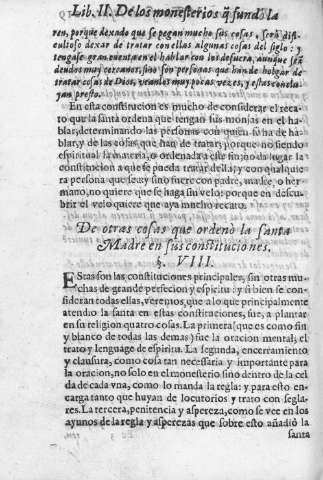 Lib. II. De los monesterios q̃ fundò la
ren, porque dexado que se pegan mucho sus cosas, serà difi-
cultoso dexar de tratar con ellas algunas cosas del siglo: y
tengase gran cuenta en el hablar con los de fuera, aunque seã
deudos muy cercanos, sino son personas que han de holgar de
tratar cosas de Dios, veanlos muy pocas vezes, y estas conclu-
yan presto.
En esta constitucion es mucho de considerar el reca-
to que la santa ordena que tengan sus monjas en el ha-
blar, determinando las personas con quien se ha de ha-
blar, y de las cosas que han de tratar, porque no siendo
espiritual la materia, o ordenada a este fin, no da lugar la
constitucion a que se pueda tratar della; y con qualquie
ra persona que sea, y sino fuere con padre, madre, o her-
mano, no quiere que se haga sin velo: porque en descu-
brir el velo quiere que aya mucho recato.
De otras cosas que ordenò la santa
Madre en sus constituciones.
§. VIII.
Estas son las constituciones principales, sin otras mu-
chas de grande perfecion y espiritu: y si bien se con-
sideran todas ellas, veremos, que a lo que principalmente
atendio la santa en estas constituciones, fue, a plantar
en su religion quatro cosas. La primera (que es como fin
y blanco de todas las demas) fue la oracion mental, el
trato y lenguage de espiritu. La segunda, encerramiento
y clausura, como cosa tan necessaria y importante para
la oracion, no solo en el monesterio sino dentro de la cel
da de cada vna, como lo manda la regla: y para esto en-
carga tanto que huyan de locutorios y trato con segla-
res. La tercera, penitencia y aspereza, como se vee en los
ayunos de la regla y asperezas que sobre esto añadiò la
santa